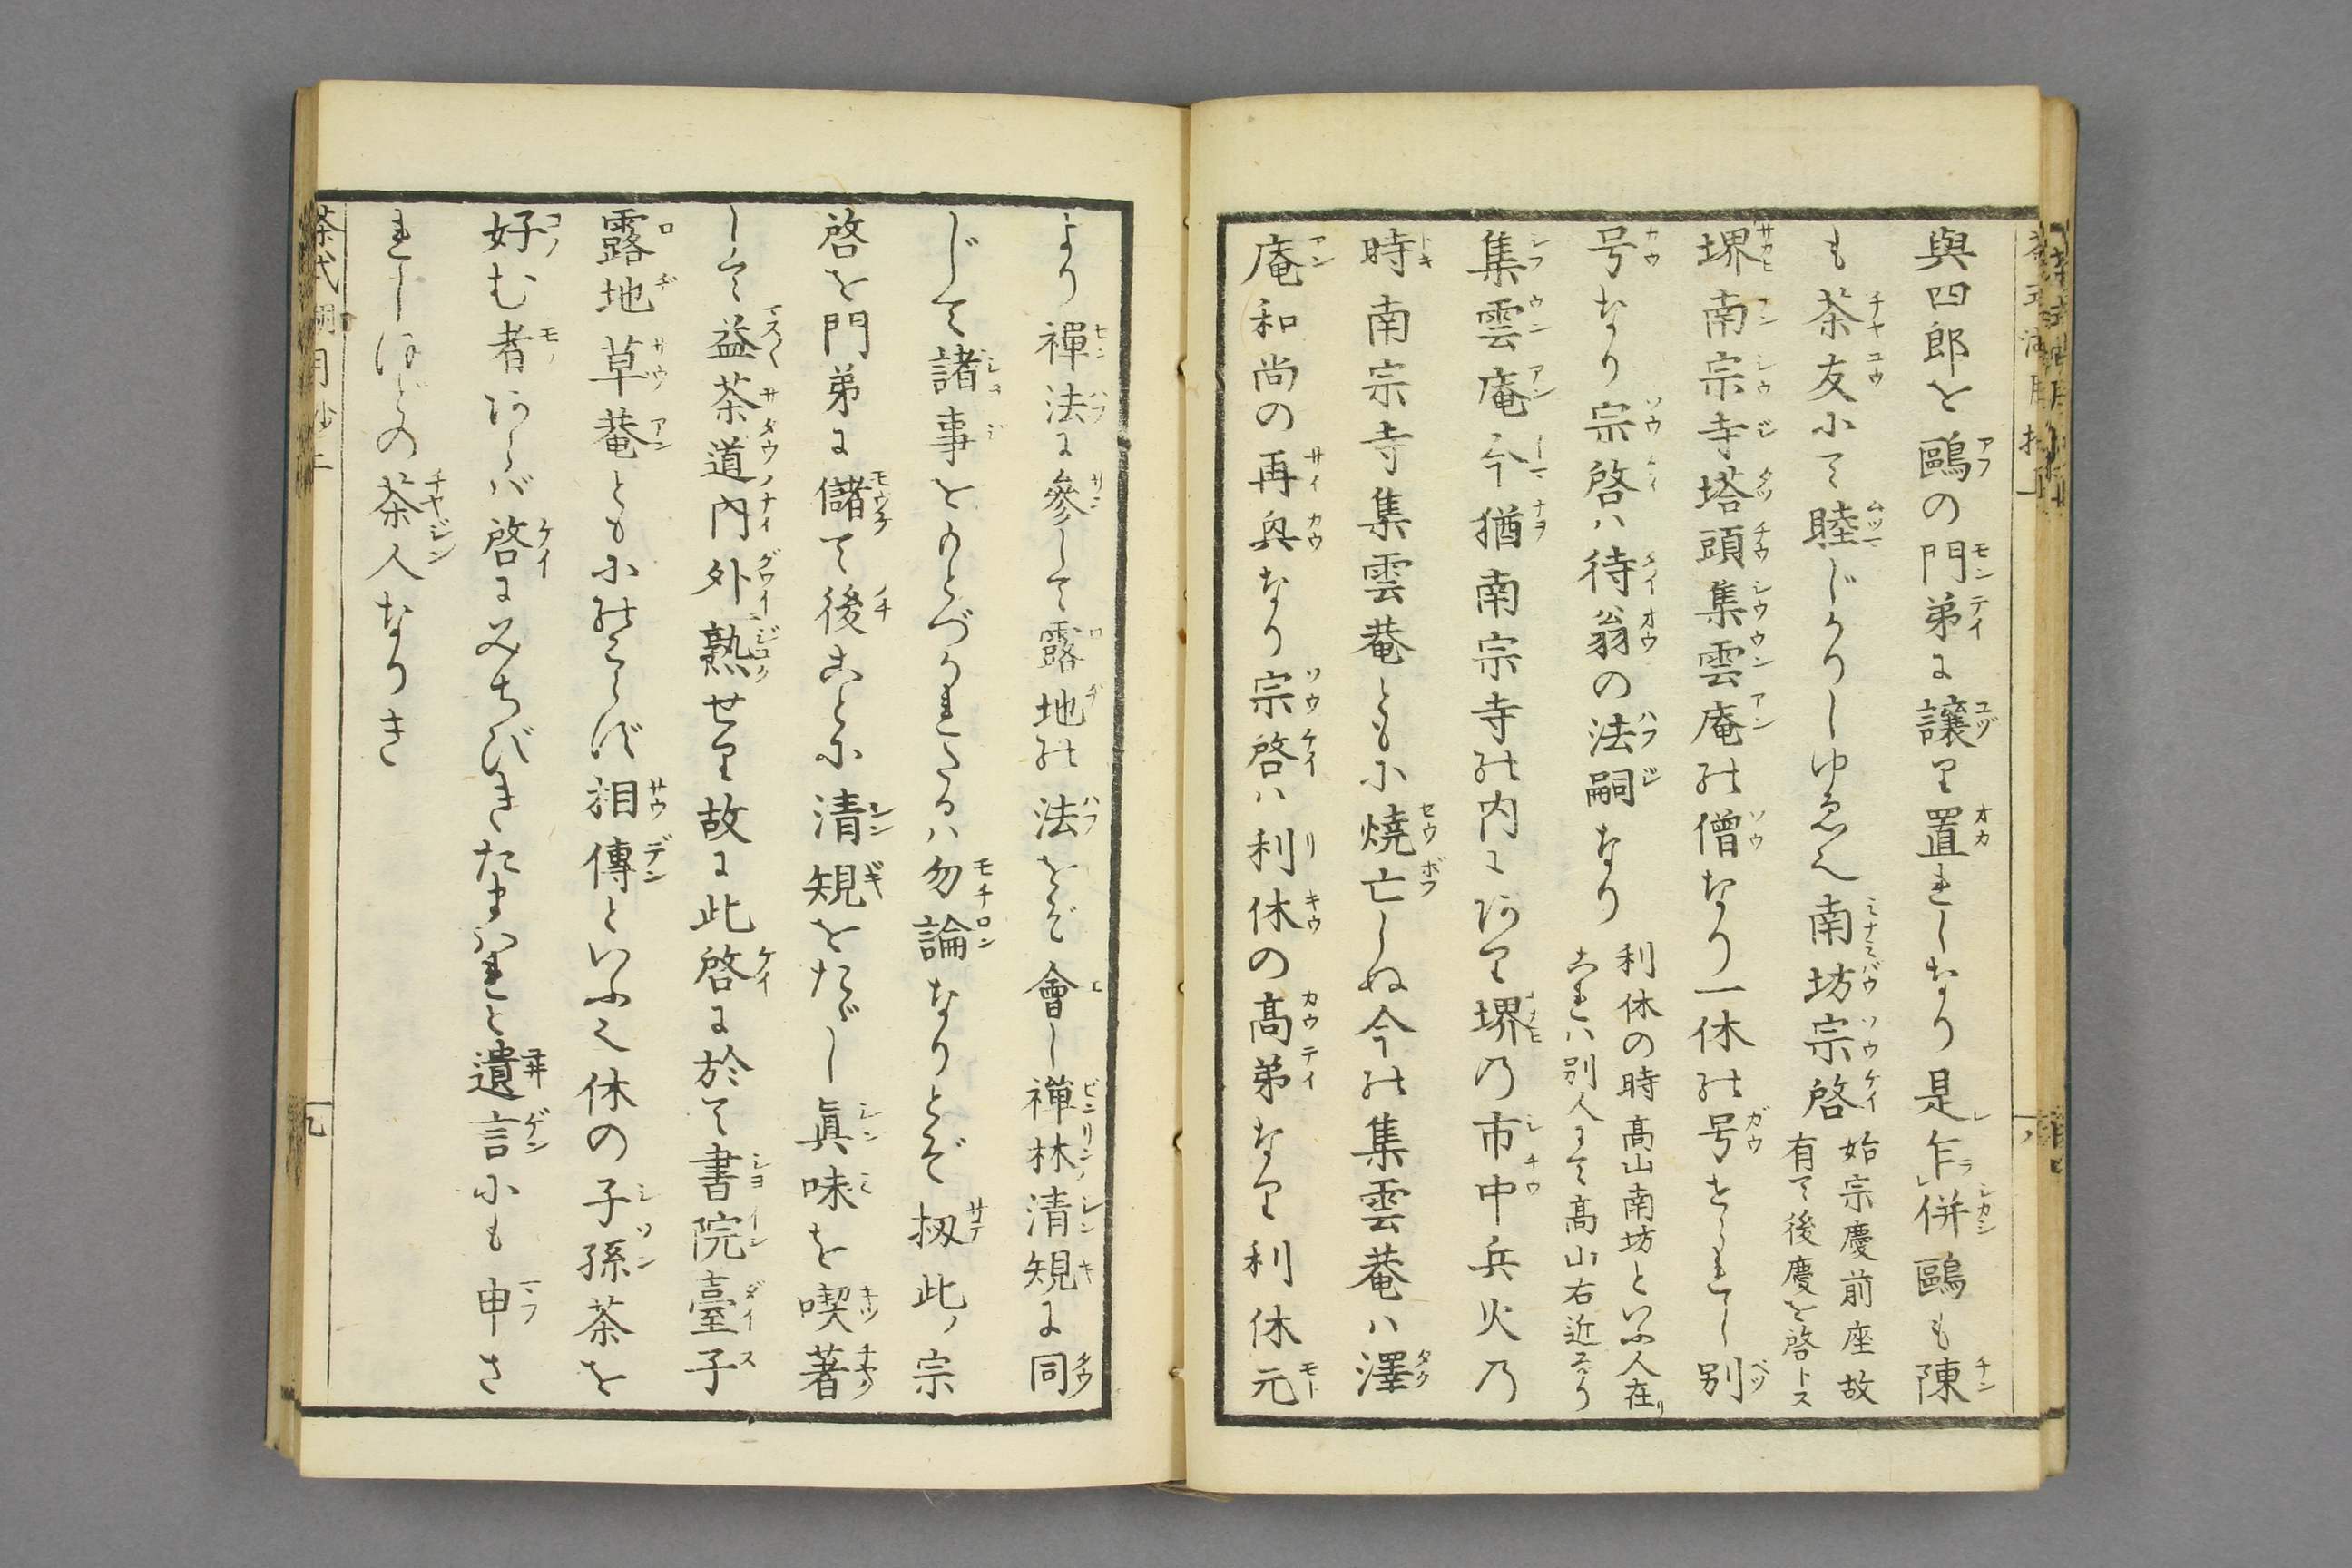 與四郎を鷗の門弟に譲り置れしなり是乍併鷗も陳
も茶友にて睦じかりしゆゑ也南坊宗啓始宗慶前座故
有て後慶を啓トス
堺南宗寺塔頭集雲庵の僧なり一休の号をられし別
号なり宗啓ハ待翁の法嗣なり利休の時髙山南坊といふ人在リ
これハ別人にて髙山右近なり
集雲庵今猶南宗寺の内にあり堺の市中兵火の
時南宗寺集雲菴ともに焼亡しぬ今の集雲菴ハ澤
庵和尚の再興なり宗啓ハ利休の髙弟なり利休元
より禪法に參して露地の法をぞ會し禪林清規に同
じて諸事をもとづかれたるハ勿論なりとぞ扨此ノ宗
啓を門弟に儲て後ことに清規をたゞし眞味を喫著
して益茶道内外熟せり故に此啓に於て書院臺子
露地草菴ともにのこらず相傳といふ也休の子孫茶を
好む者あらバ啓にみちびきたまハれと遺言にも申さ
れしほどの茶人なりき
茶式湖月抄二